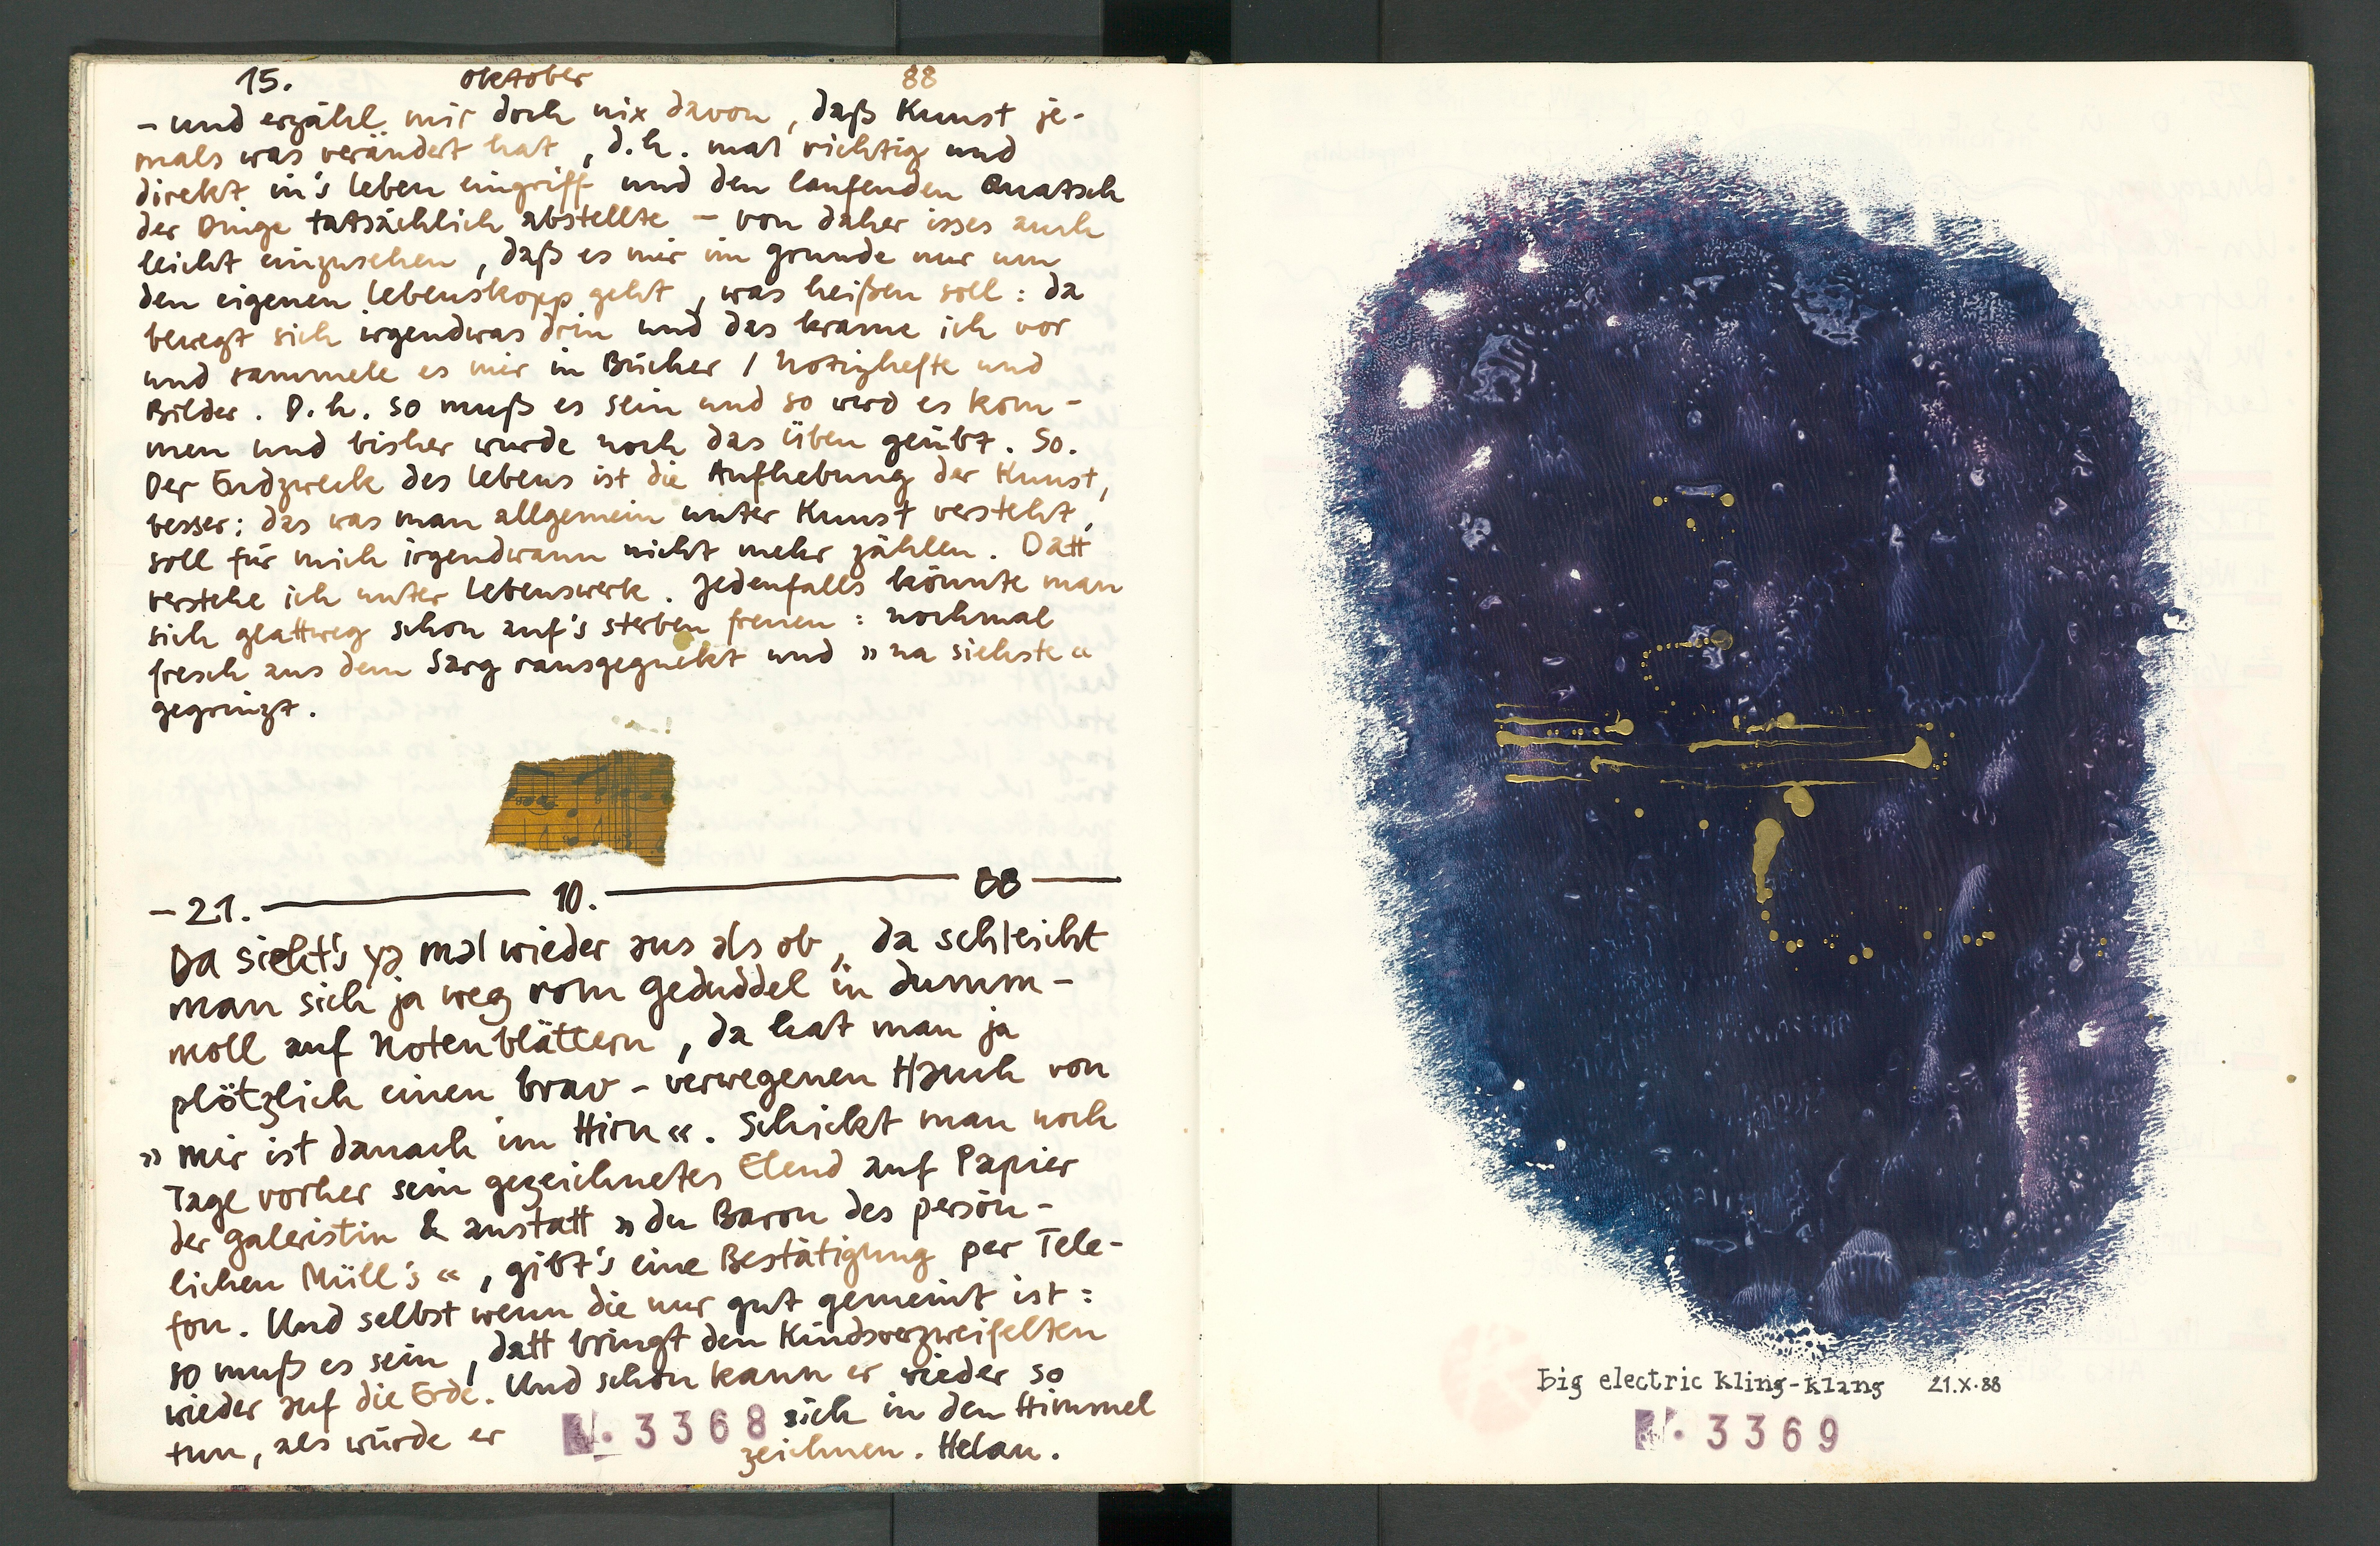 15. Oktober 88
- und erzähl mir doch nix davon, daß Kunst je-
mals was verändert hat, d.h. mal richtig und
direkt in's Leben eingriff und den laufenden Quatsch
der Dinge tatsächlich abstellte - von daher isses auch
leicht einzusehen, daß es mir im Grunde nur um
den eigenen Lebenskopp geht, was heißen soll: da
bewegt sich irgendwas drin und das krame ich vor
und sammele es mir in Bücher / Notizhefte und
Bilder. D.h. so muß es sein und so wird es kom-
men und bisher wurde noch das Üben geübt. So.
Der Endzweck des Lebens ist die Aufhebung der Kunst,
besser: das was man allgemein unter Kunst versteht,
soll für mich irgendwann nicht mehr zählen. Datt
verstehe ich unter Lebenswerk. Jedenfalls könnte man
sich glattweg schon auf's sterben freuen: nochmal
fresch aus dem Sarg rausgeguckt und »na siehste«
gegrinzt.
- 21. 10. 88
Da sieht's ja mal wieder aus als ob, da schleicht
man sich ja weg vom Geduddel in dumm-
moll auf Notenblättern, da hat man ja
plötzlich einen brav-verwegenen Hauch von
»mir ist danach im Hirn«. Schickt man noch
Tage vorher sein gezeichnetes Elend auf Papier
der Galeristin & anstatt »du Baron des persön-
lichen Müll's«, gibt's eine Bestätigung per Tele-
fon. Und selbst wenn die nur gut gemeint ist:
so muß es sein, datt bringt den Kindsverzweifelten
wieder auf die Erde. Und schon kann er wieder so
tun, als würde er sich in den Himmel
zeichnen. Helau.
N. 3368
big electric kling-klang 21.X.88
N. 3369